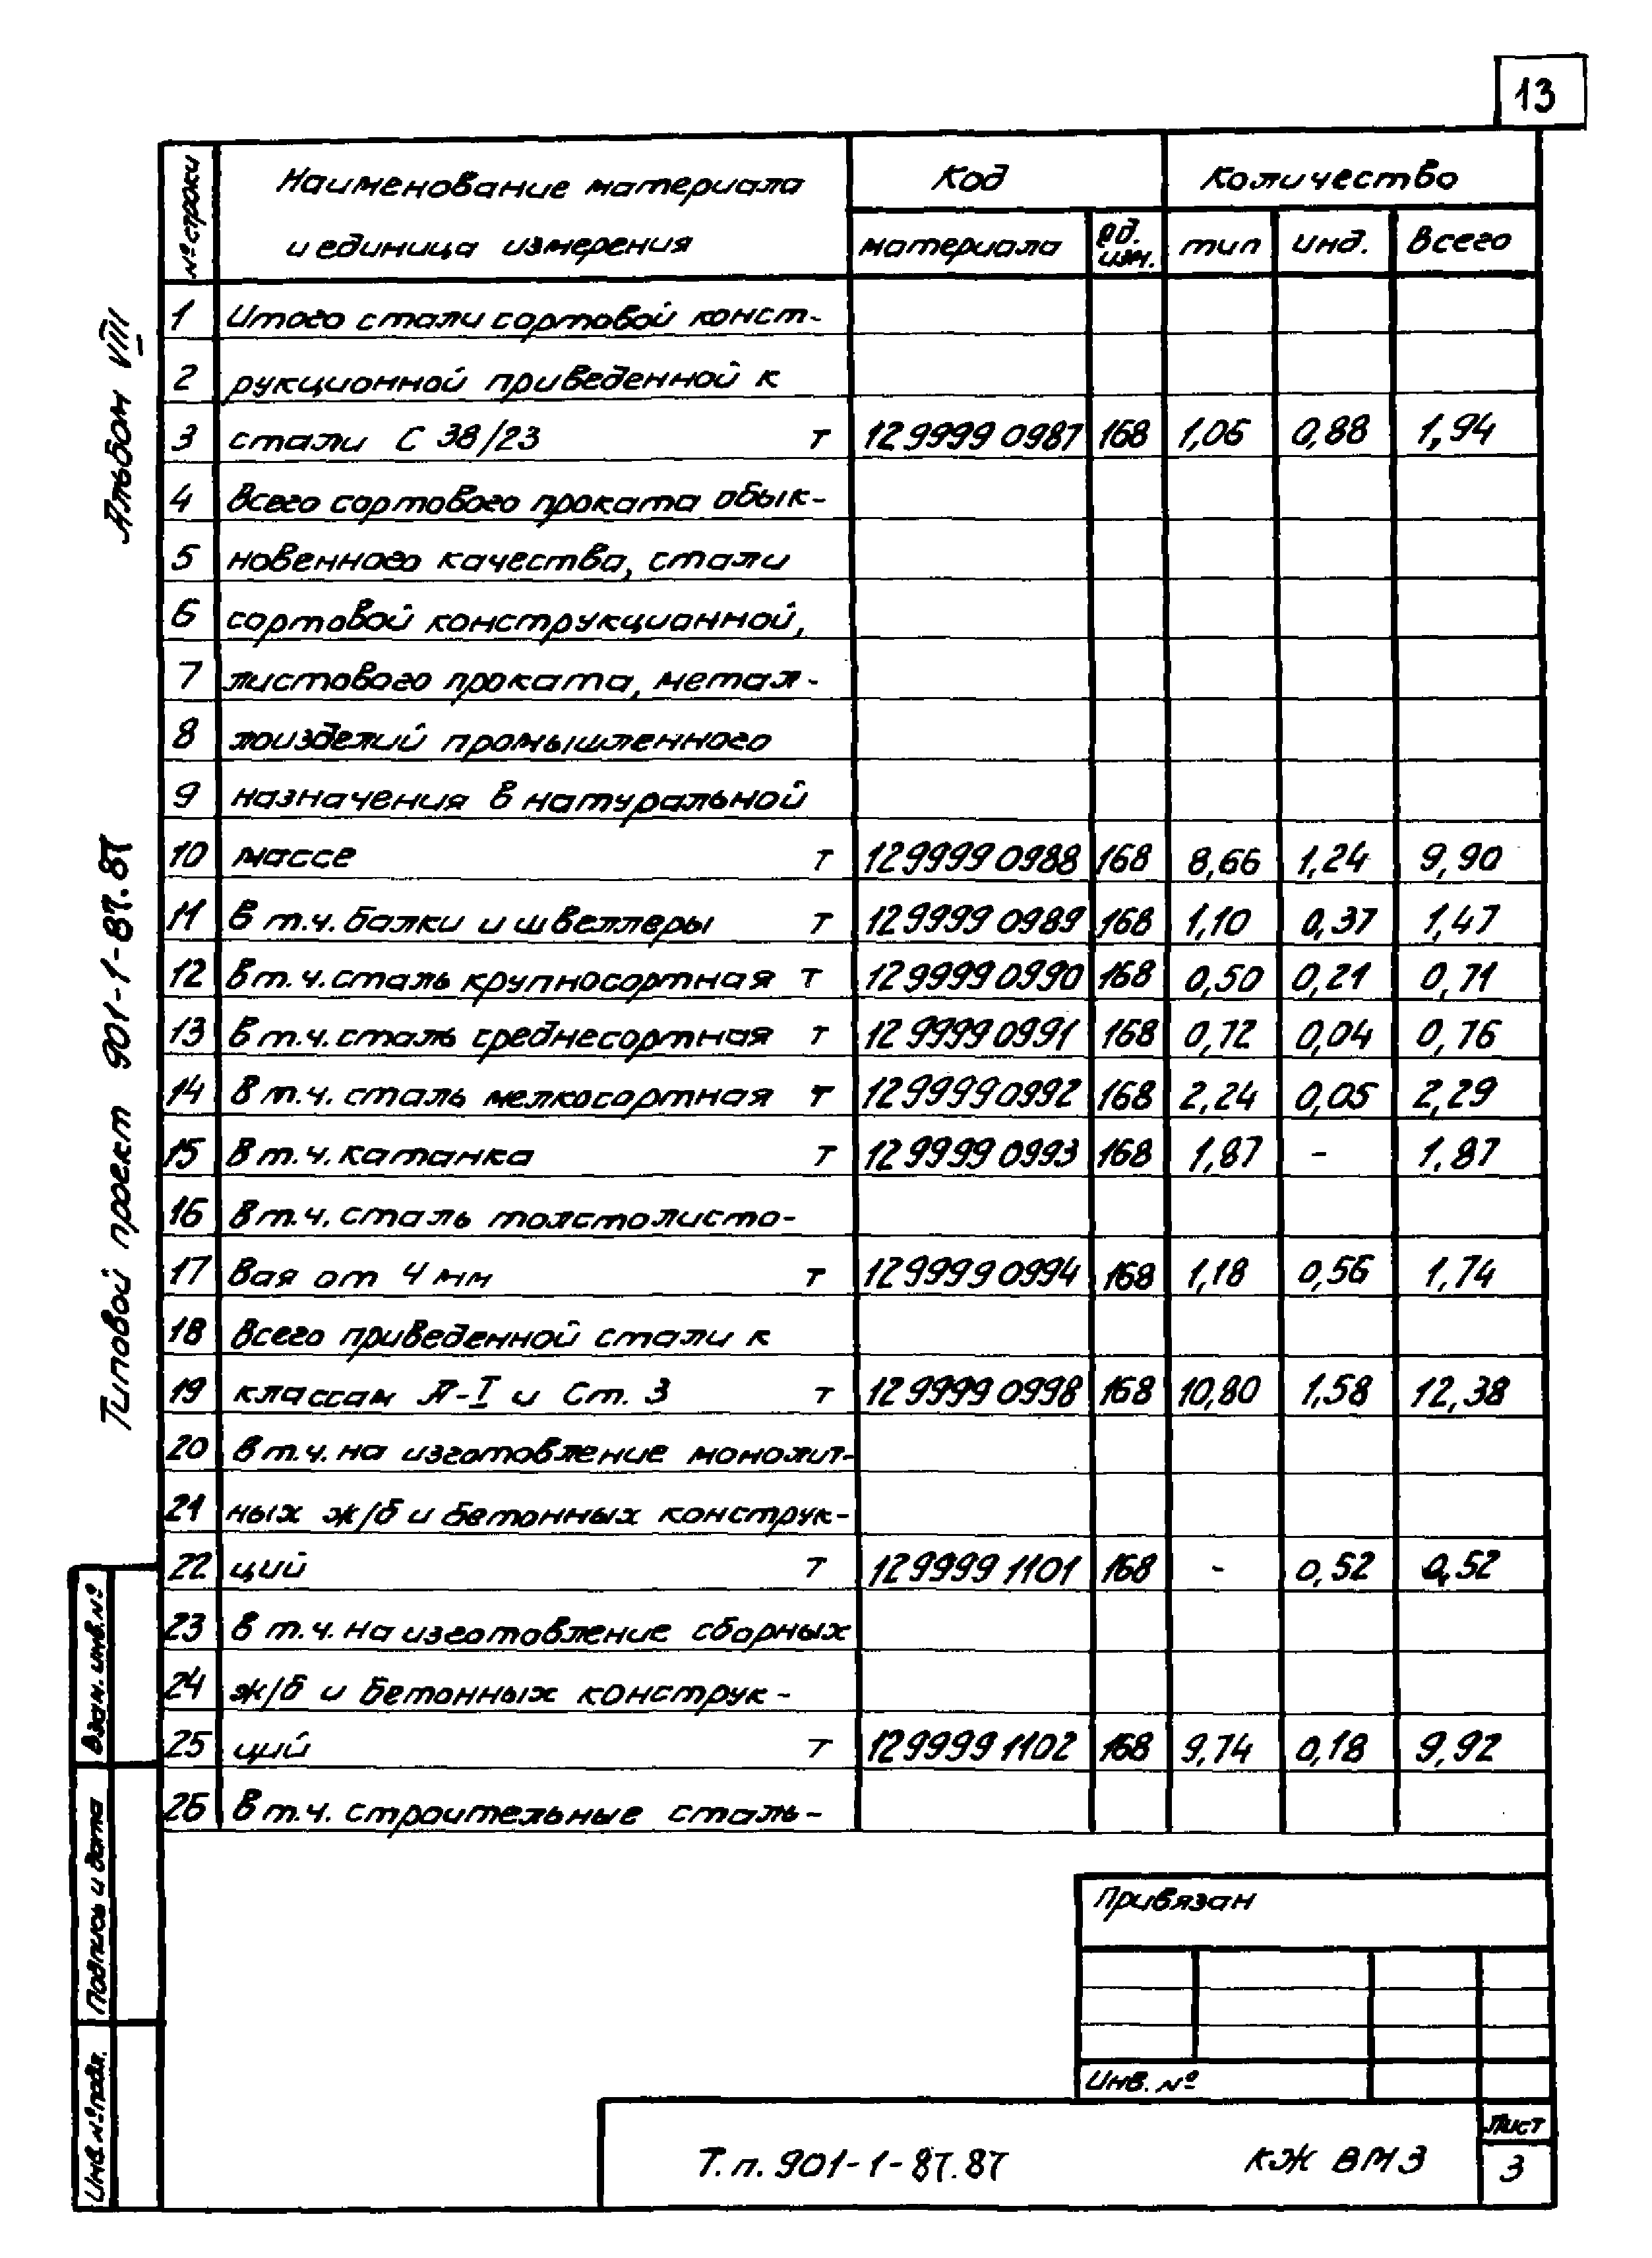 13
№ строки
Наименование материала
и единица измерения
Код
Количество
материала
ед. изм.
тип
инд.
всего
1 Итого стали сортовой конст-
2 рукционной приведенной к
3 стали С 38/23 т 129999 0987 168 1,06 0,88 1,94
4 всего сортового проката обык-
5 новенного качества, стали
6 сортовой конструкционной,
7 листового проката, метал-
8 лоизделий промышленного
9 назначения в натуральной
10 массе т 129999 0988 168 8,66 1,24 9,90
11 в т.ч. балки и швеллеры т 129999 0989 168 1,10 0,37 1,47
12 в т.ч. сталь крупносортная т 129999 0990 168 0,50 0,21 0,71
13 в т.ч. сталь среднесортная т 129999 0991 168 0,72 0,04 0,76
14 в т.ч. сталь мелкосортная т 129999 0992 168 2,24 0,05 2,29
15 в т.ч. катанка т 129999 0993 168 1,87 - 1,87
16 в т.ч. сталь толстолисто-
17 вая от 4 мм т 129999 0994 168 1,18 0,56 1,74
18 всего приведенной стали к
19 классам А-I и Ст. 3 т 129999 0998 168 10,80 1,58 12,38
20 в т.ч. на изготовление монолит-
21 ных ж/б и бетонных конструк-
22 ций т 129999 1101 168 - 0,52 0,52
23 в т.ч. на изготовление сборных
24 ж/б и бетонных конструк-
25 ций т 129999 1102 168 9,74 0,18 9,92
26 в т.ч. строительные сталь-
Альбом VIII
Типовой проект 901-1-87.87
Взам. инв. №
Подпись и дата
Инв. № подл.
Привязан
Инв. №
Т.п. 901-1-87.87
КЖ ВМ3
Лист
3